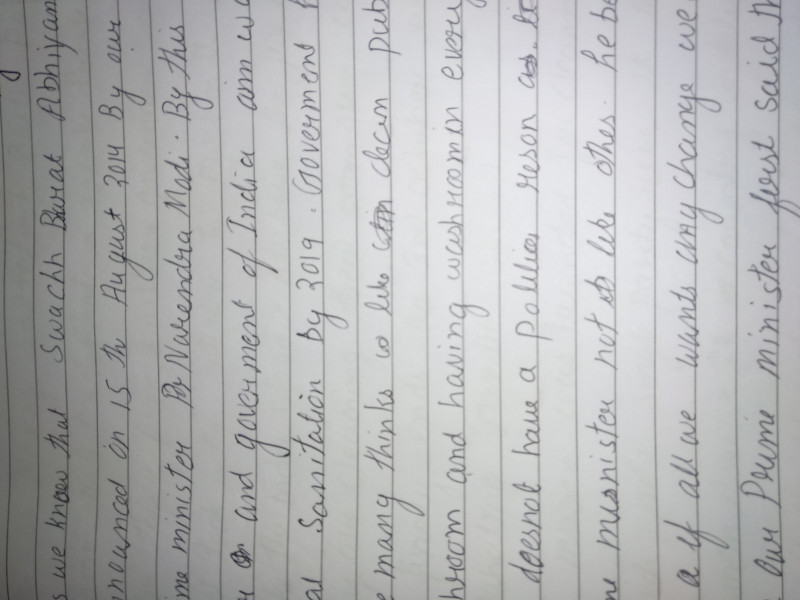 we know that Swachh Barat Abhiyan
nounced on 15 th August 2014 By our
me minister Narendra Modi. By this
and goverment of India aim
Sanitation by 2019. Goverment
many thinks like clean pub
hroom and having washroom in every
doesnot have a Politics reson as
minister not like other. he be
a if all we wants any change we
our Prime minister first said th